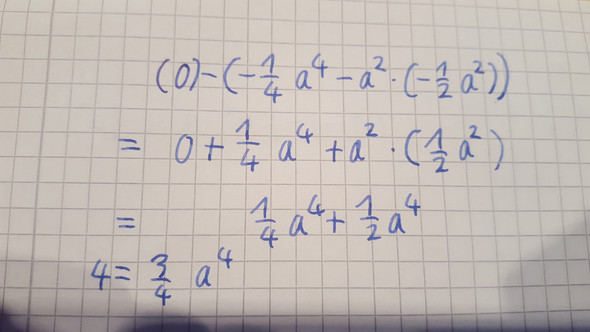 (0)-(-1/4 a⁴ - a² · (-1/2 a²))
= 0 + 1/4 a⁴ + a² · (1/2 a²)
= 1/4 a⁴ + 1/2 a⁴
4 = 3/4 a⁴